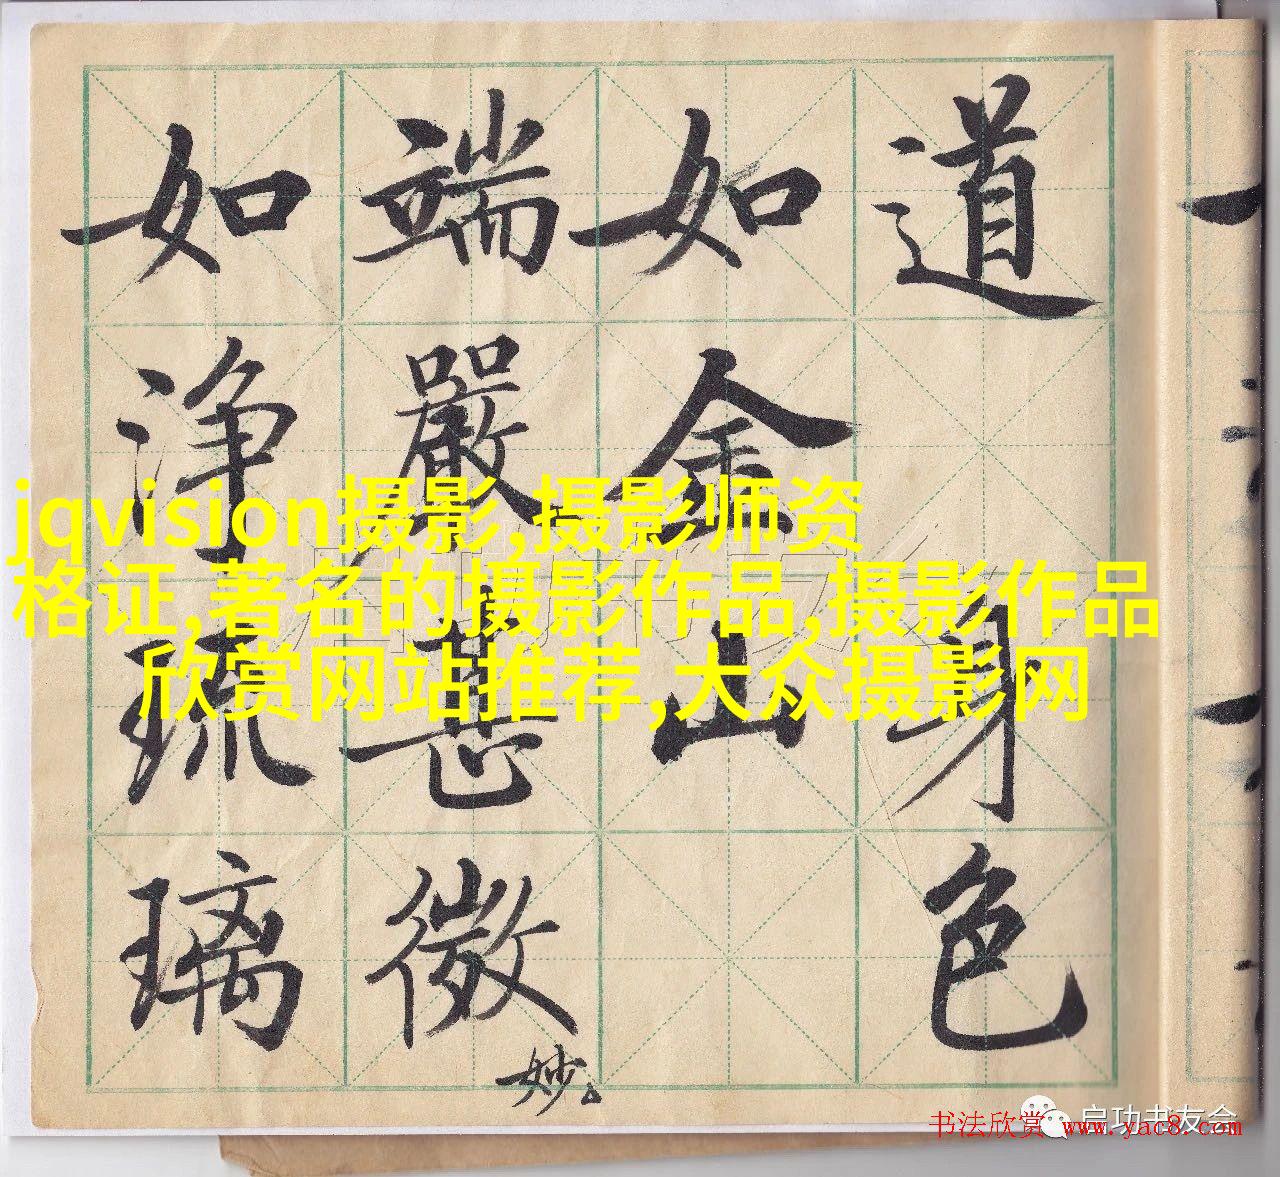 道 身色
如金山
端嚴甚微妙
如浄琉璃
jqvision摄影,摄影师资
格证,著名的摄影作品,摄影作品
欣赏网站推荐,大众摄影网
启功书友会
书法欣赏 www.yac8.com